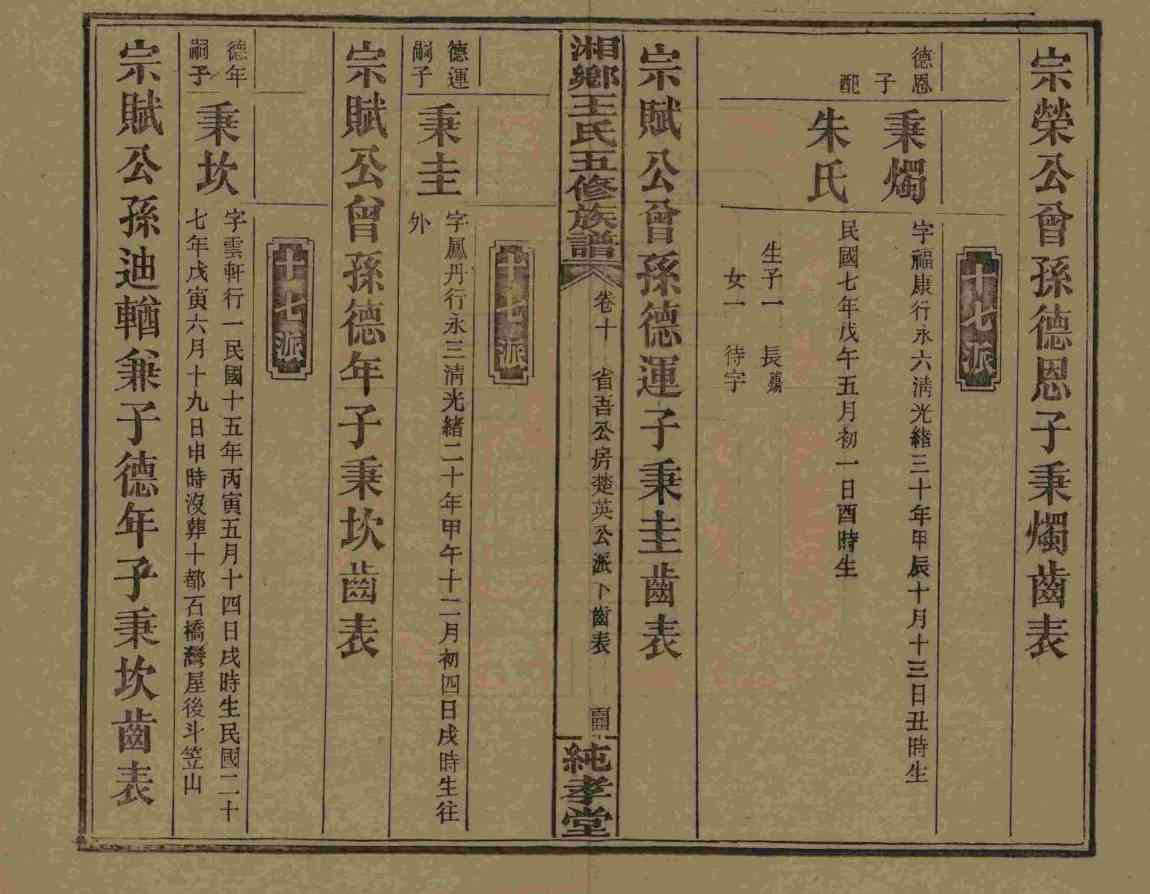 宗榮公曾孫德恩子秉燭齒表
十七派
德恩
子
配
秉燭
字福康行永六淸光緒三十年甲辰十月十三日丑時生
朱氏
民國七年戊午五月初一日酉時生
生子一 長
女一 待字
宗賦公曾孫德運子秉圭齒表
湘鄉王氏五修族譜
卷十 省吾公房楚英公派下齒表
純孝堂
十七派
德運
嗣子
秉圭
字鳳丹行永三淸光緒二十年甲午十二月初四日戌時生往
外
宗賦公曾孫德年子秉坎齒表
十七派
德年
嗣子
秉坎
字雲軒行一民國十五年丙寅五月十四日戌時生民國二十
七年戊寅六月十九日申時沒葬十都石橋灣屋後斗笠山
宗賦公孫迪輶兼子德年子秉坎齒表